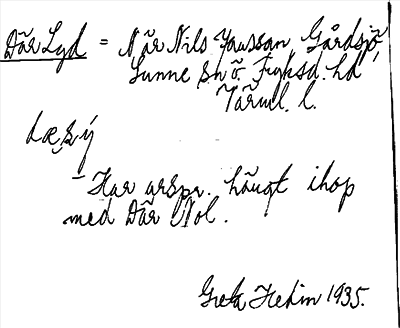 Där Lyd = När Nils Jansson Gårdsjö,
Sunne sn ö. Fryksd. hd
Värml. l.
Har urspr. hängt ihop
med Där Nol.
Greta Hedin 1935.